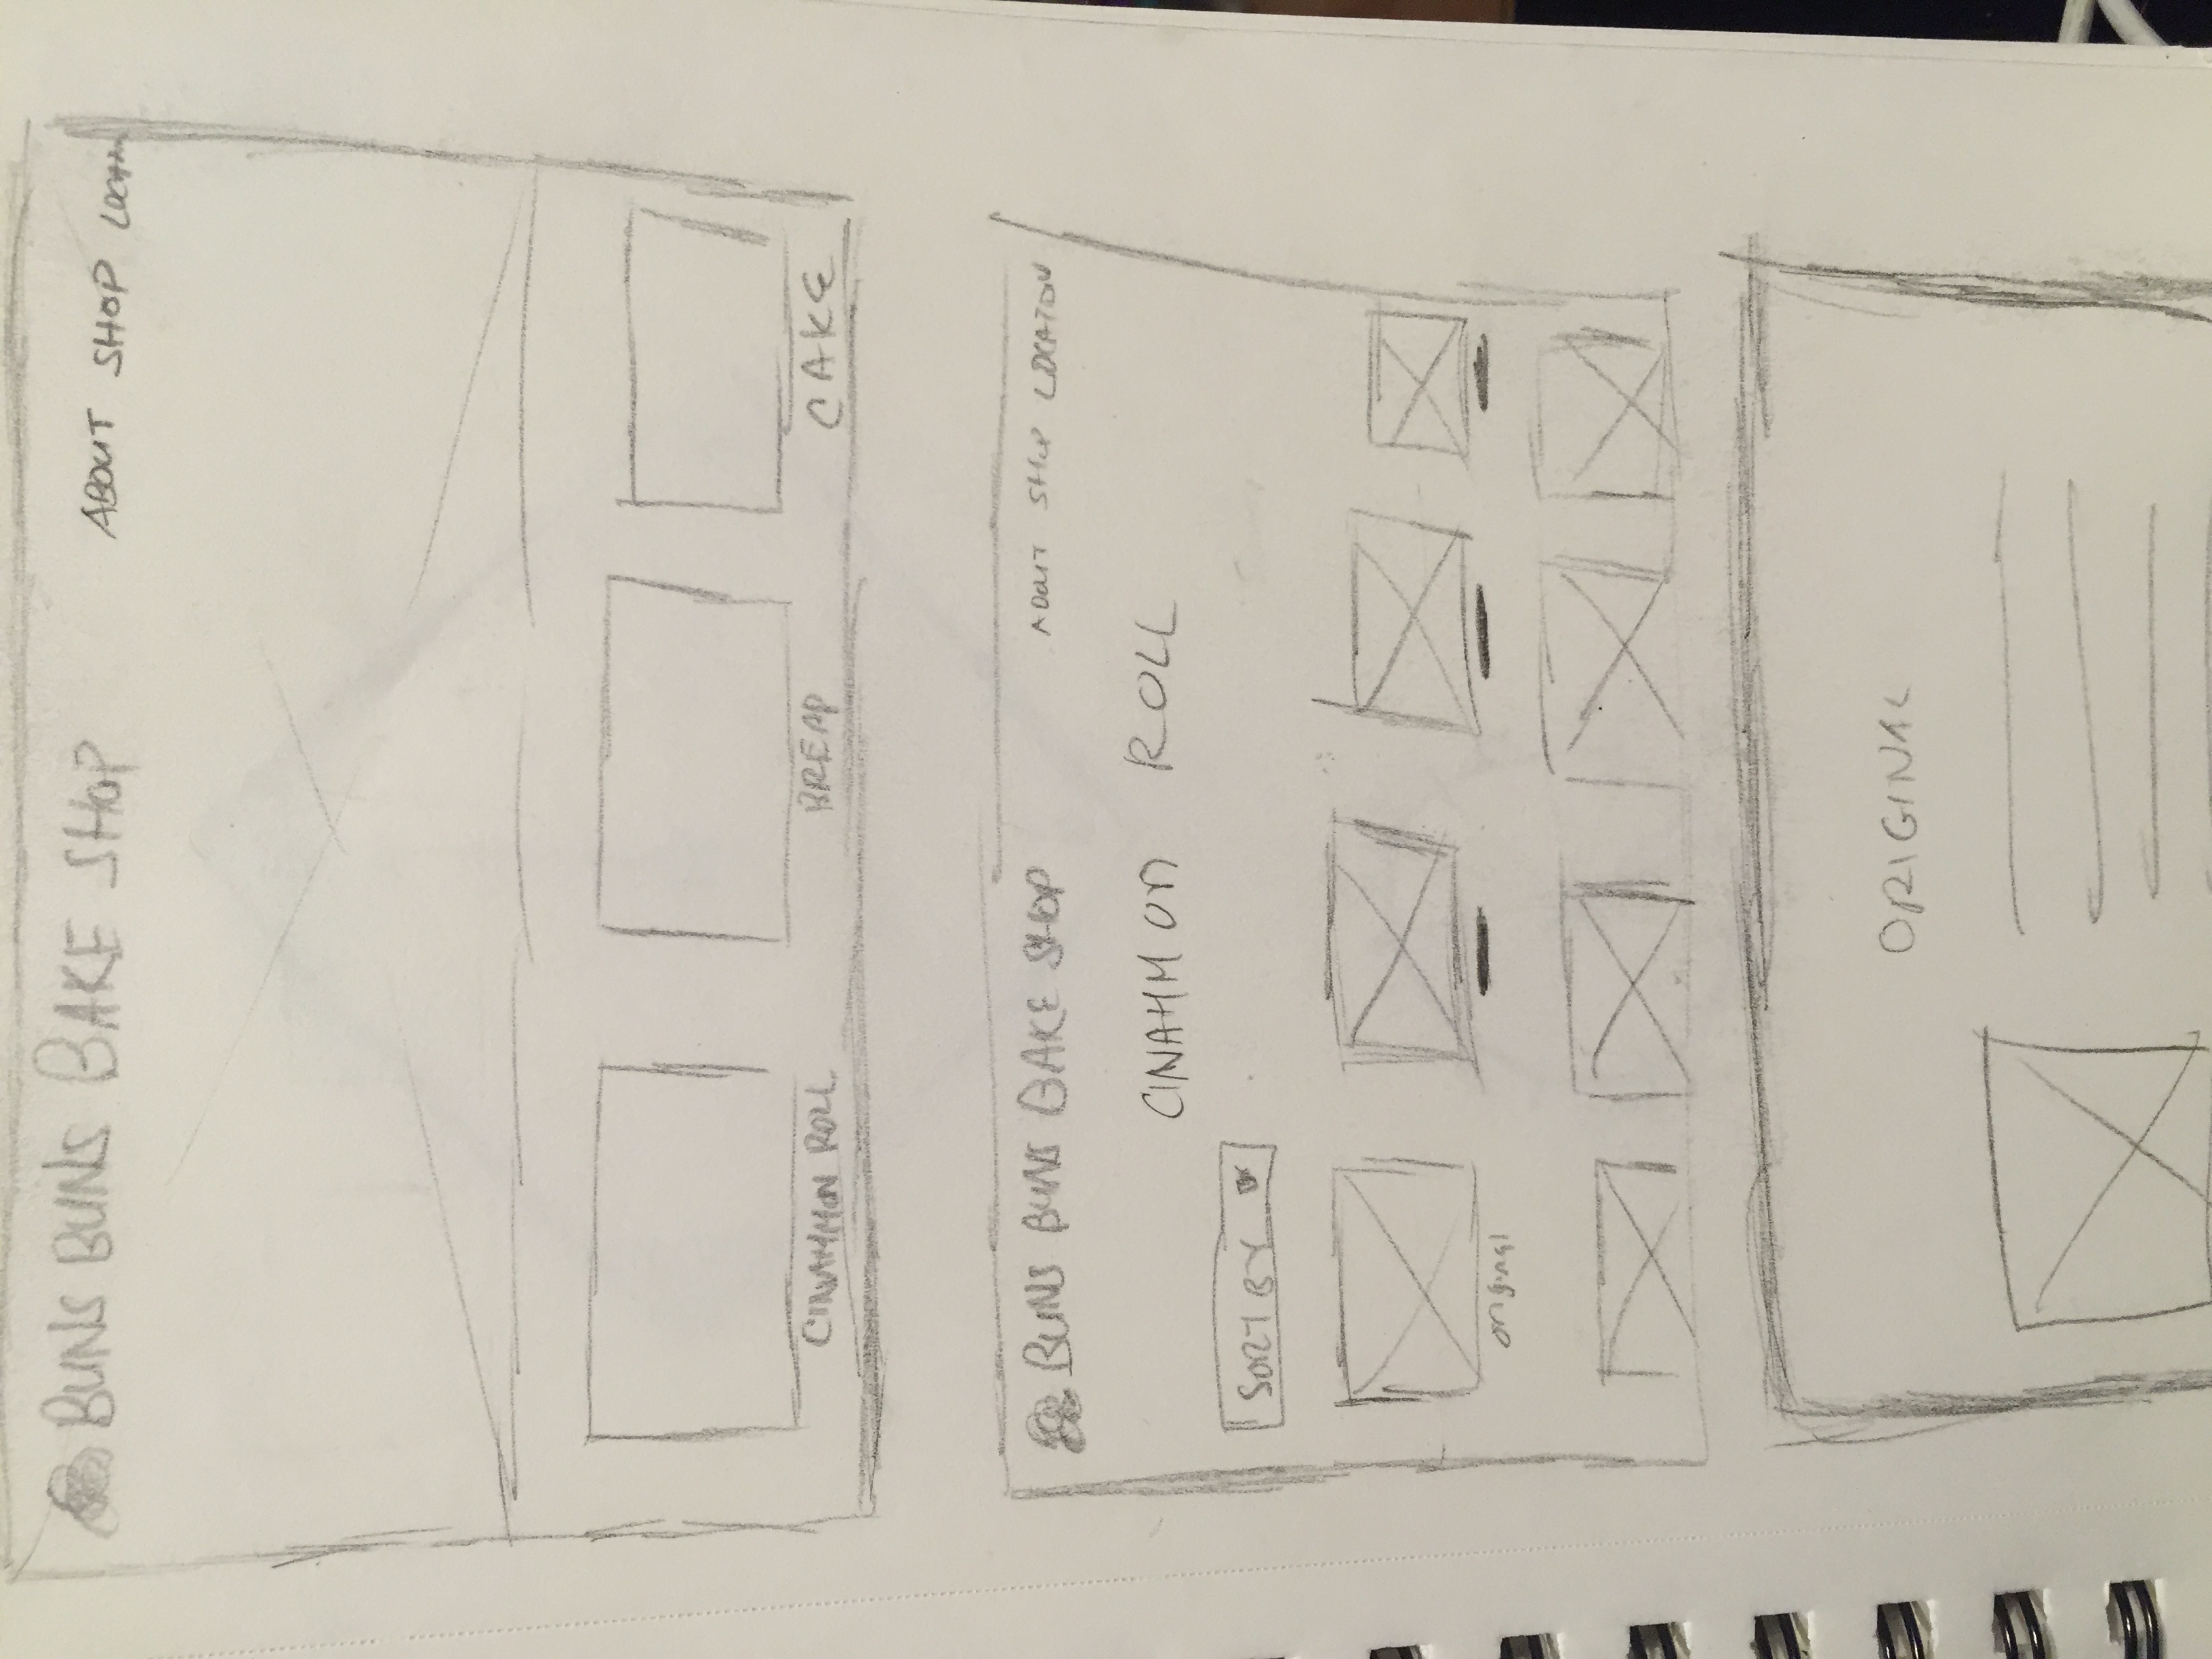 BUNS BUNS BAKE SHOP
ABOUT SHOP
CINAMMON ROLL
BREAD
CAKE
BUNS BUNS BAKE SHOP
ABOUT SHOP LOCATION
CINAMMON ROLL
SORT BY
original
ORIGINAL